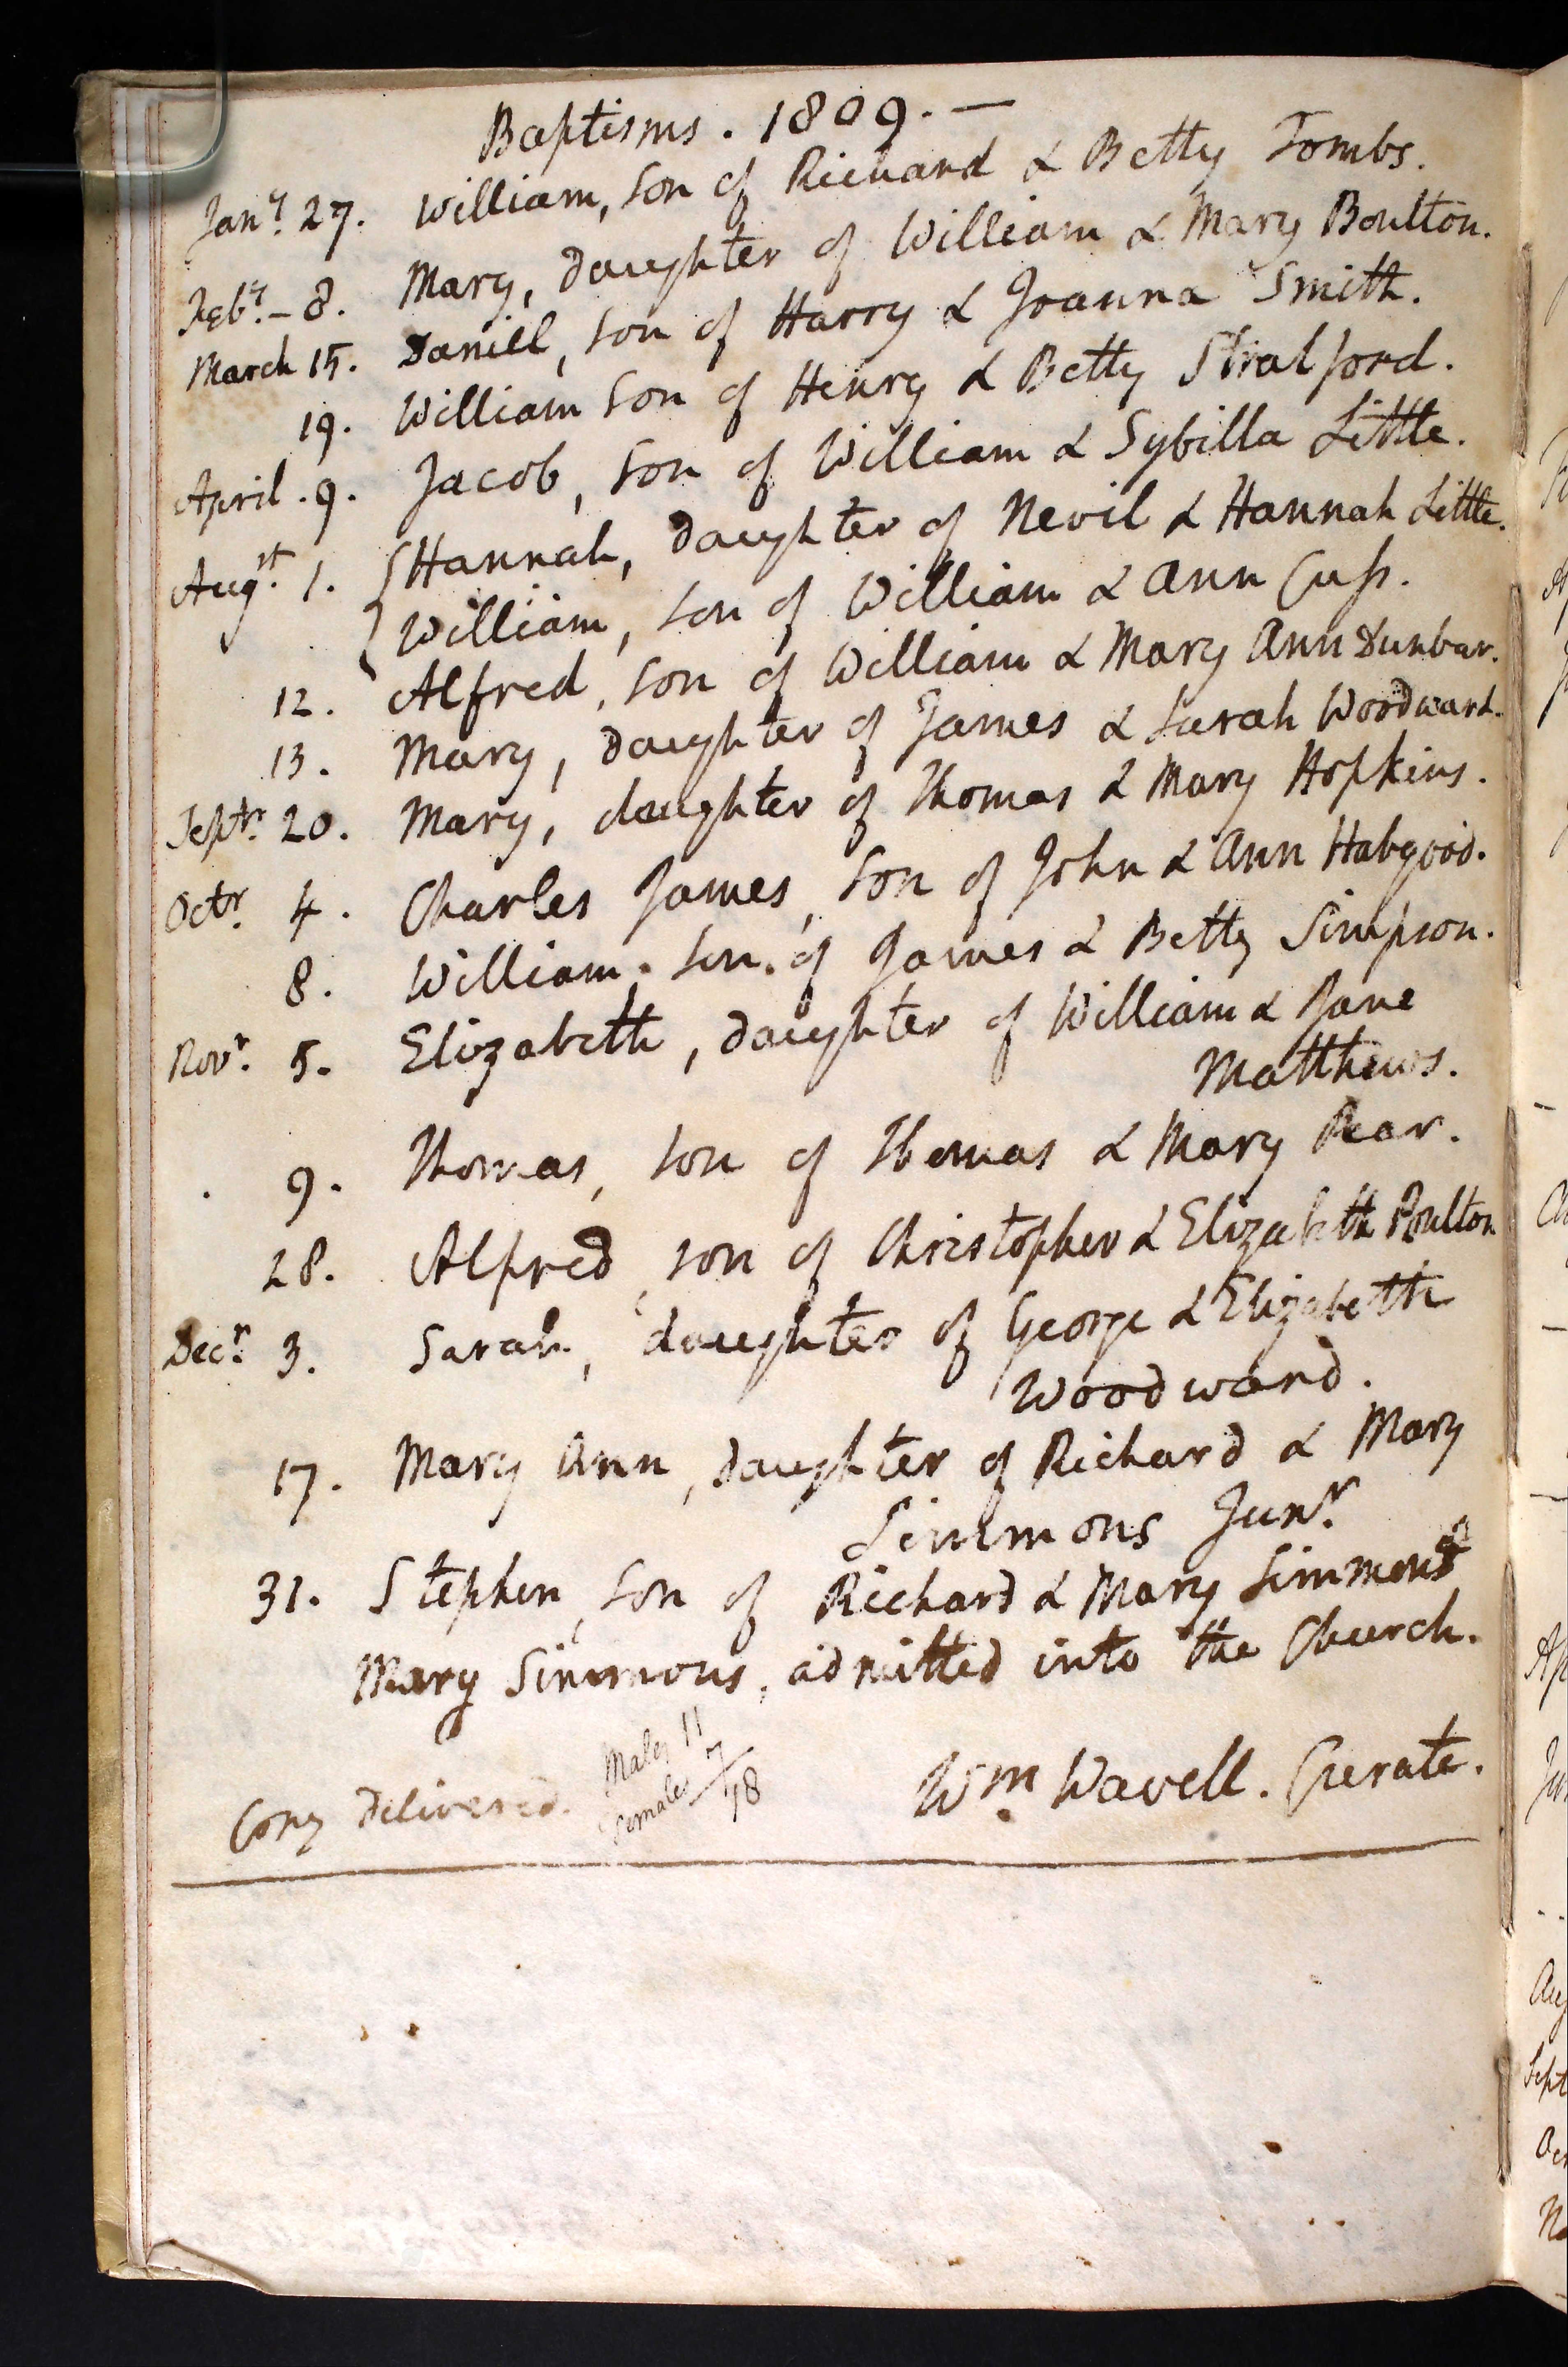 Baptisms. 1809. —
Jany. 27. William, son of Richard & Betty Tombs.
Feby. - 8. Mary, daughter of William & Mary Boulton.
March 15. Daniel, son of Harry & Joanna Smith.
19. William son of Henry & Betty Stratford.
April. 9. Jacob, son of William & Sybilla Little.
Augst. 1. {Hannah, daughter of Nevil & Hannah Little.
William, son of William & Ann Cuss.
12. Alfred, son of William & Mary Ann Dunbar.
13. Mary, daughter of James & Sarah Woodward.
Septr. 20. Mary, daughter of Thomas & Mary Hopkins.
Octr. 4. Charles James, son of John & Ann Habgood.
8. William. son. of James & Betty Simpson.
Novr. 5. Elizabeth, daughter of William & Jane
Matthews.
9. Thomas, son of Thomas & Mary
28. Alfred, son of Christopher & Elizabeth Poulton
Decr. 3. Sarah, daughter of George & Elizabeth
Woodward.
17. Mary Ann, daughter of Richard & Mary
Simmons Junr.
31. Stephen, son of Richard & Mary Simmons
Mary Simmons, admitted into the Church.
Males 11
Females 7
18
Copy Delivered. Wm. Wavell. Curate.